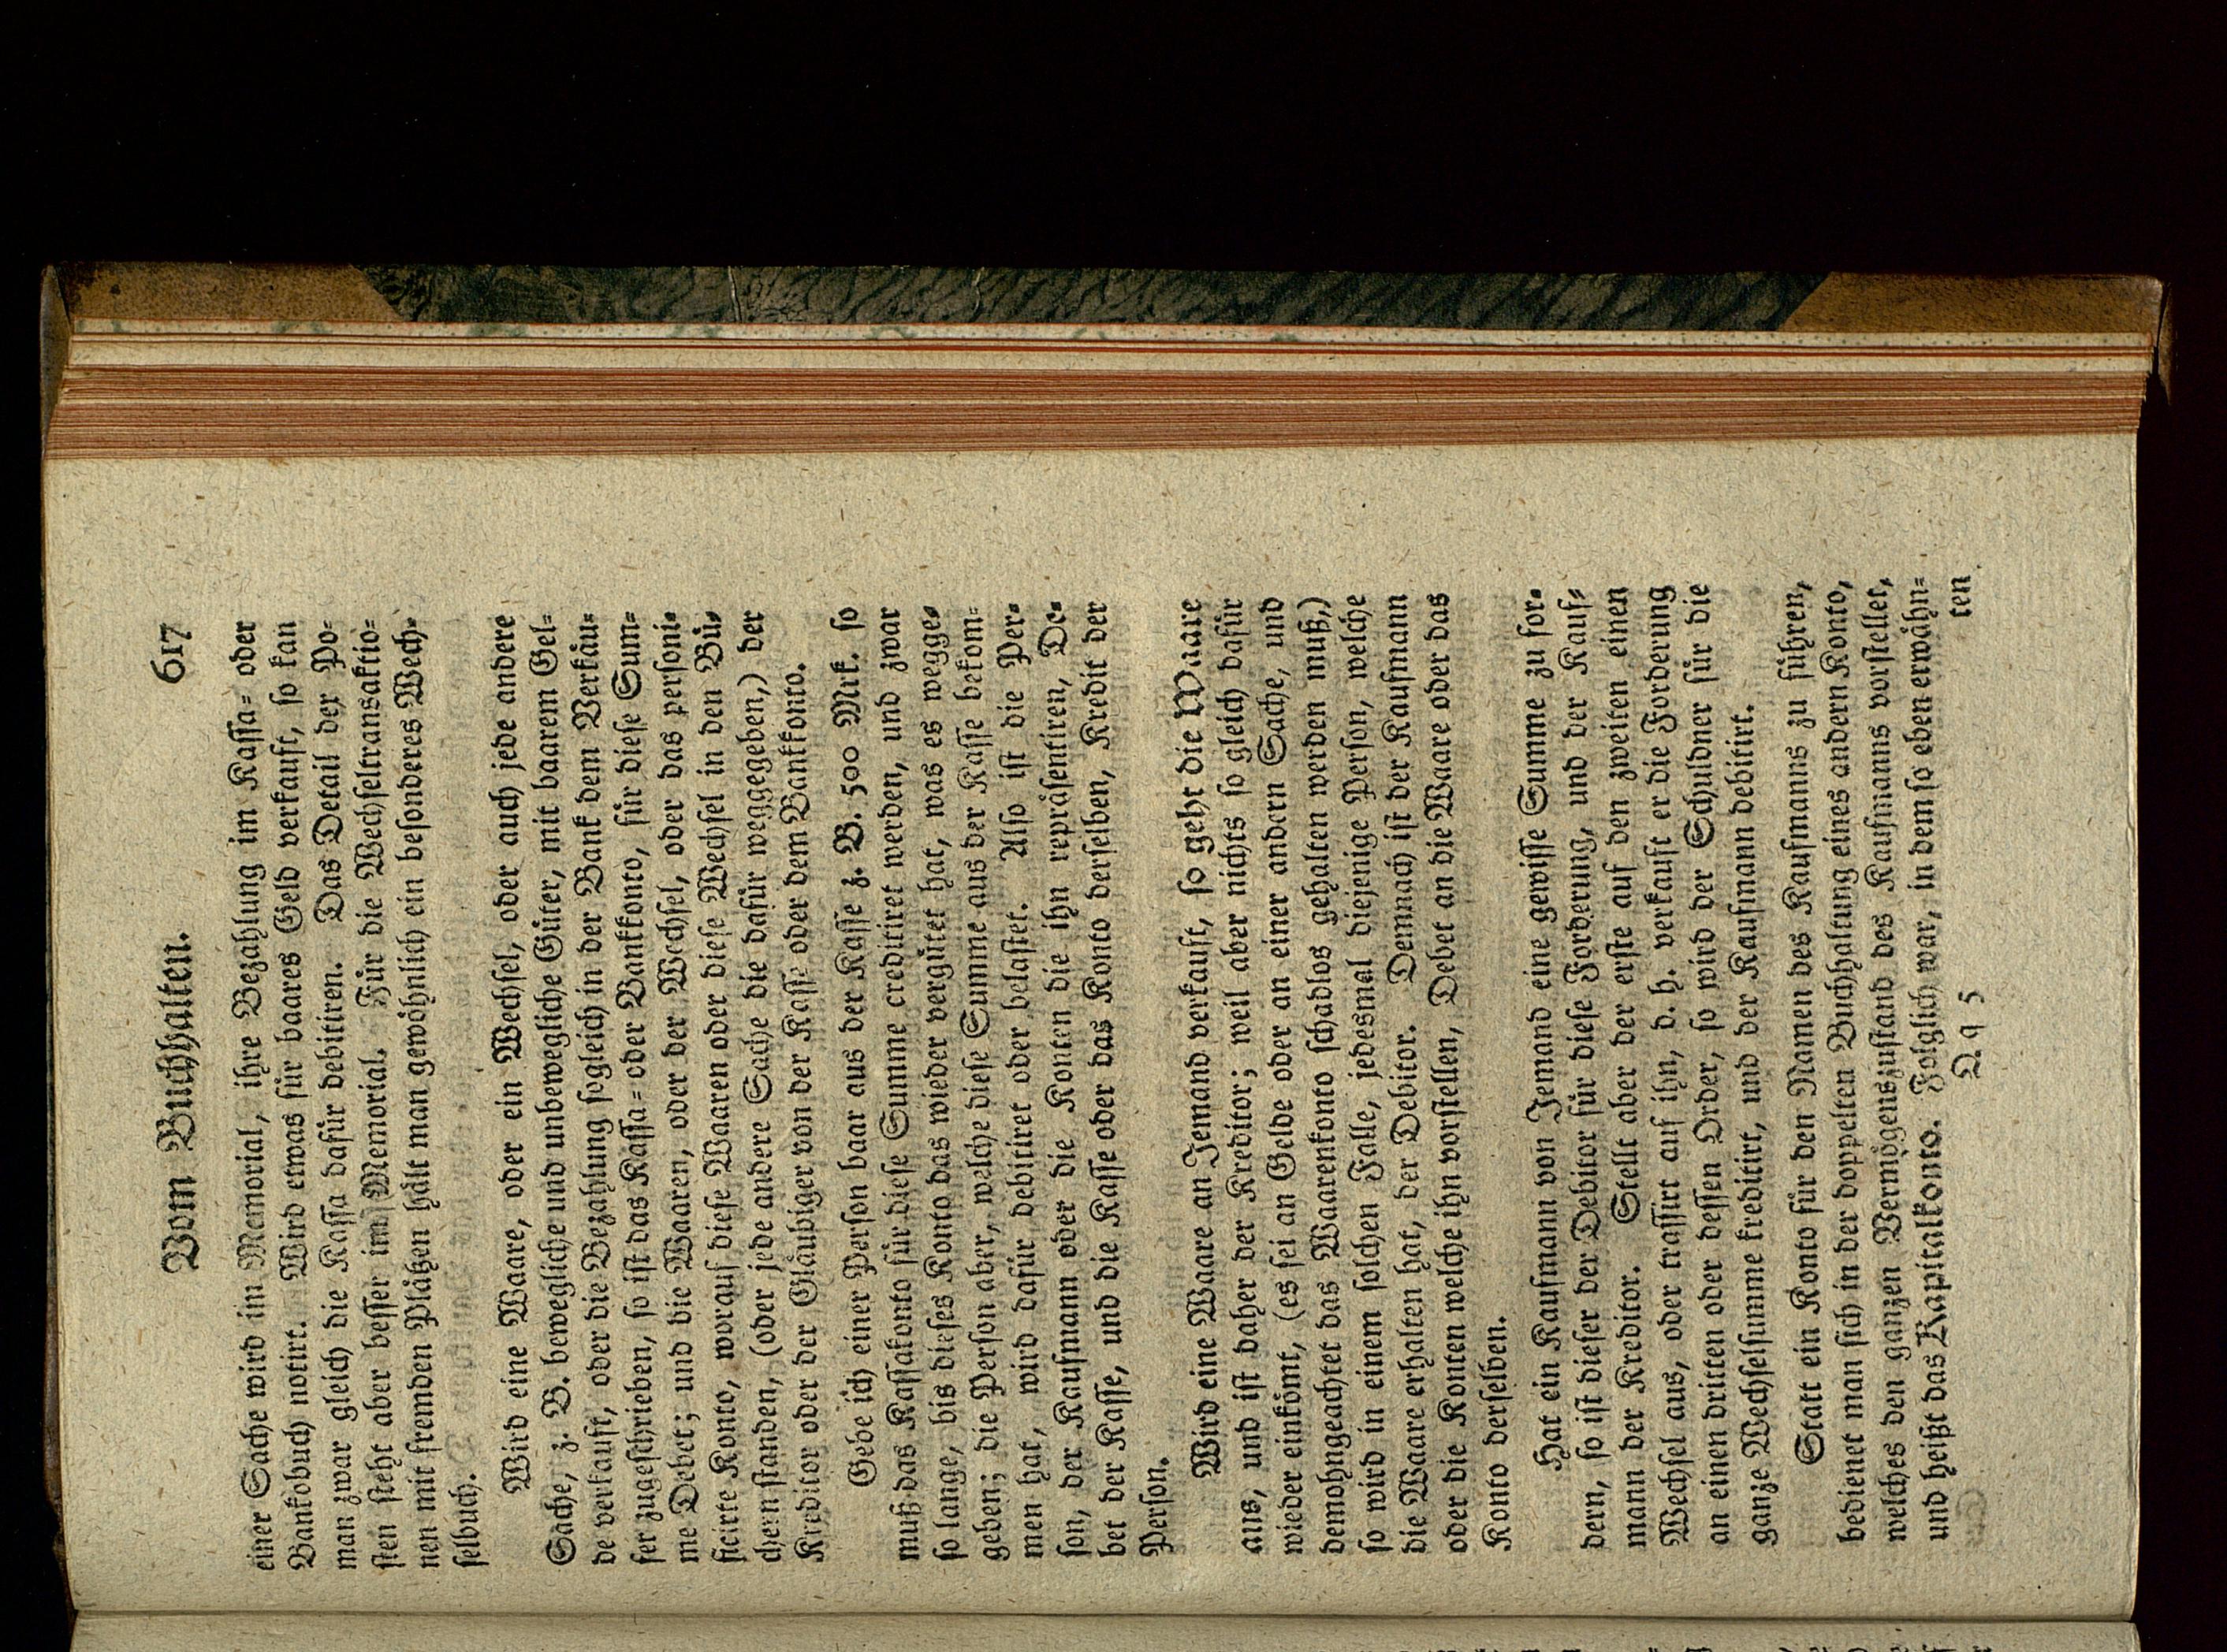 Vom Buchhalten. 617
einer Sache wird im Memorial, ihre Bezahlung im Kassa= oder
Bankobuch notirt. Wird etwas für baares Geld verkauft, so kan
man zwar gleich die Kassa dafür debitiren. Das Detail der Po=
sten steht aber besser im Memorial. Für die Wechseltransaktio=
nen mit fremden Plätzen hält man gewöhnlich ein besonderes Wech=
selbuch.
Wird eine Waare, oder ein Wechsel, oder auch jede andere
Sache, z. B. bewegliche und unbewegliche Güter, mit baarem Gel=
de verkauft, oder die Bezahlung sogleich in der Bank dem Verkäu=
fer zugeschrieben, so ist das Kassa= oder Bankkonto, für diese Sum=
me Debet; und die Waaren, oder der Wechsel, oder das personi=
ficirte Konto, worauf diese Waaren oder diese Wechsel in den Bü=
chern standen, (oder jede andere Sache die dafür weggegeben,) der
Kreditor oder der Gläubiger von der Kasse oder dem Bankkonto.
Gebe ich einer Person baar aus der Kasse z. B. 500 Mrk. so
muß das Kassakonto für diese Summe creditiret werden, und zwar
so lange, bis dieses Konto das wieder vergütet hat, was es wegge=
geben; die Person aber, welche diese Summe aus der Kasse bekom=
men hat, wird dafür debitiret oder belastet. Also ist die Per=
son, der Kaufmann oder die Konten die ihn repräsentiren, De=
bet der Kasse, und die Kasse oder das Konto derselben, Kredit der
Person.
Wird eine Waare an Jemand verkauft, so geht die Waare
aus, und ist daher der Kreditor; weil aber nichts so gleich dafür
wieder einkömt, (es sei an Gelde oder an einer andern Sache, und
demohngeachtet das Waarenkonto schadlos gehalten werden muß,)
so wird in einem solchen Falle, jedesmal diejenige Person, welche
die Waare erhalten hat, der Debitor. Demnach ist der Kaufmann
oder die Konten welche ihn vorstellen, Debet an die Waare oder das
Konto derselben.
Hat ein Kaufmann von Jemand eine gewisse Summe zu for=
dern, so ist dieser der Debitor für diese Forderung, und der Kauf=
mann der Kreditor. Stellt aber der erste auf den zweiten einen
Wechsel aus, oder trassirt auf ihn, d. h. verkauft er die Forderung
an einen dritten oder dessen Order, so wird der Schuldner für die
ganze Wechselsumme kreditirt, und der Kaufmann debitirt.
Statt ein Konto für den Namen des Kaufmanns zu führen,
bedienet man sich in der doppelten Buchhaltung eines andern Konto,
welches den ganzen Vermögenszustand des Kaufmanns vorstellet,
und heißt das Kapitalkonto. Folglich war, in dem so eben erwähn=
Q q 5 ten